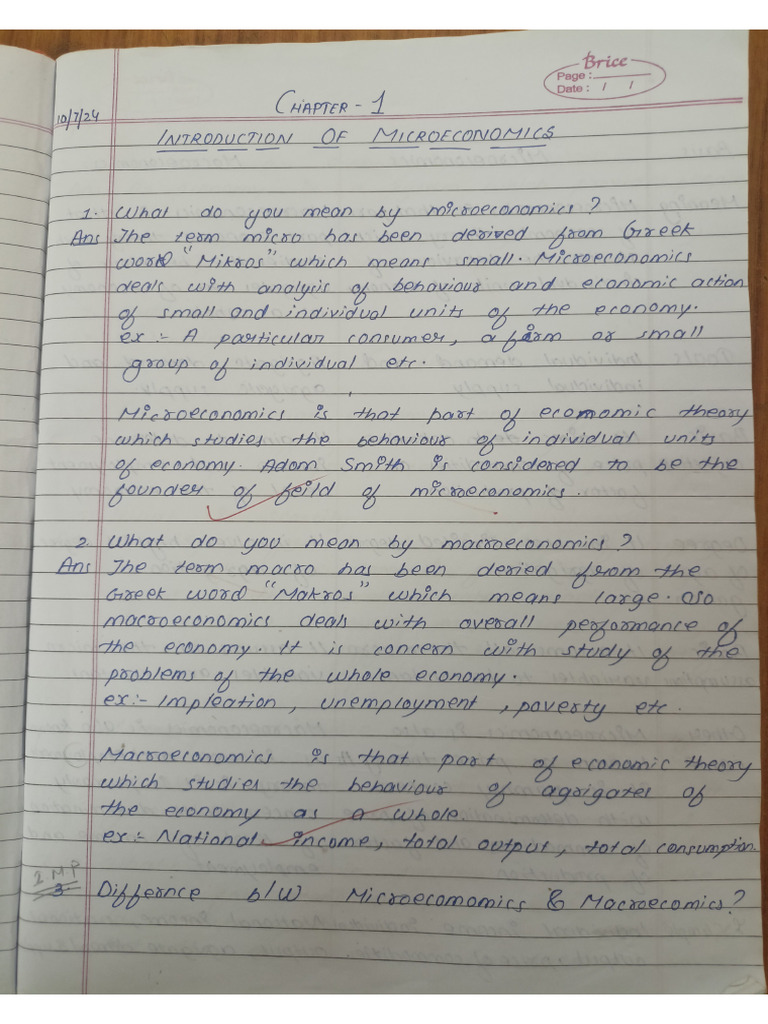 Brice
Page :
Date : / /
10/7/24
CHAPTER - 1
INTRODUCTION OF MICROECONOMICS
1. What do you mean by microeconomics ?
Ans The term micro has been derived from Greek
work "Mikros" which means small. Microeconomics
deals with analysis of behaviour and economic action
of small and individual units of the economy.
ex :- A particular consumer, a firm or small
group of individual etc.
Microeconomics is that part of economic theory
which studies the behaviour of individual units
of economy. Adom Smith is considered to be the
founder of feild of microeconomics.
2. What do you mean by macroeconomics ?
Ans The term macro has been deried from the
Greek word "Makros" which means large. oso
macroeconomics deals with overall performance of
the economy. It is concern with study of the
problems of the whole economy.
ex :- Impleation, unemployment, poverty etc.
Macroeconomics is that part of economic theory
which studies the behaviour of agrigates of
the economy as a whole.
ex :- National income, total output, total consumption.
I.MP
3. Differnce b/w Microecomomics & Macroecomics ?